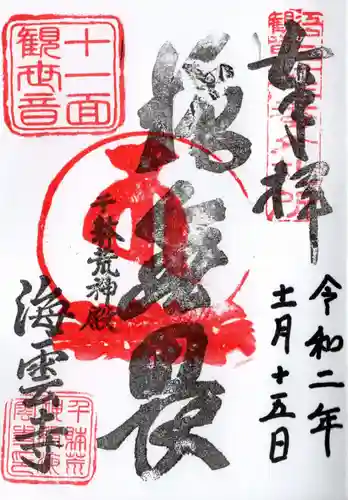 奉拝
令和二年
十一月十五日
施無畏
千躰荒神殿
海雲寺
十一面
観世音